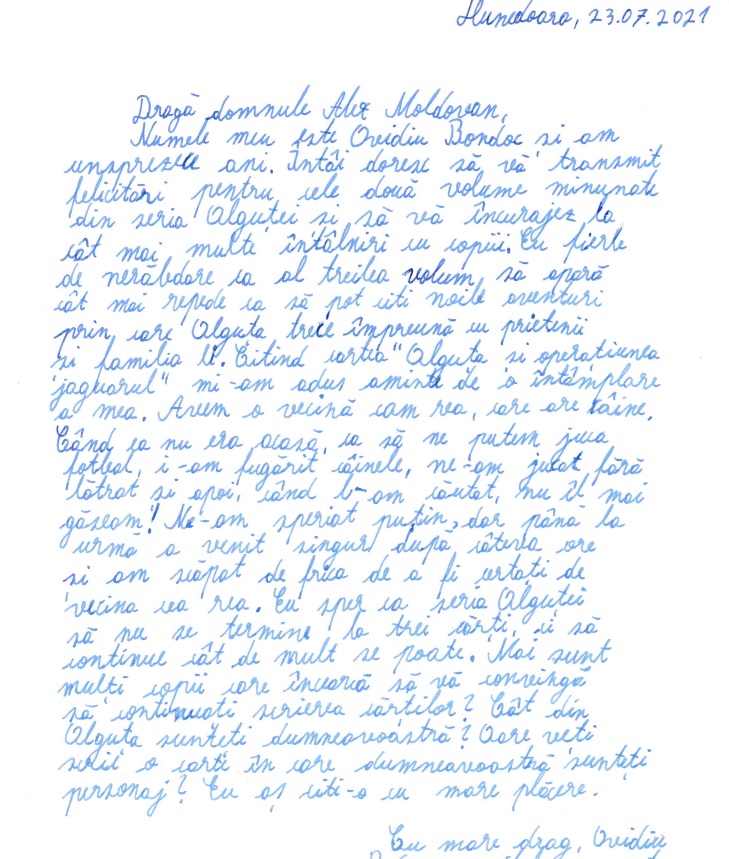 Hunedoara, 23.07.2021
Dragă domnule Alex Moldovan,
Numele meu este Ovidiu Bondoc și am
unsprezece ani. Întâi doresc să vă transmit
felicitări pentru cele două volume minunate
din seria Olguței și să vă încurajez la
cât mai multe întâlniri cu copiii. Eu fierb
de nerăbdare ca al treilea volum să apară
cât mai repede ca să pot citi noile aventuri
prin care Olguța trece împreună cu prietenii
și familia ei. Citind cartea "Olguța și operațiunea
jaguarul" mi-am adus aminte de o întâmplare
a mea. Avem o vecină cam rea, care are câine.
Când ea nu era acasă, ca să ne putem juca
fotbal, i-am fugărit câinele, ne-am jucat fără
lătrat și apoi, când l-am căutat, nu îl mai
găseam! Ne-am speriat puțin, dar până la
urmă a venit singur după câteva ore
și am scăpat de frica de a fi certați de
vecina cea rea. Eu sper ca seria Olguței
să nu se termine la trei cărți, ci să
continue cât de mult se poate. Mai sunt
mulți copii care încearcă să vă convingă
să continuați scrierea cărților? Cât din
Olguța sunteți dumneavoastră? Oare veți
scrie o carte în care dumneavoastră sunteți
personaj? Eu aș citi-o cu mare plăcere.
Cu mare drag, Ovidiu